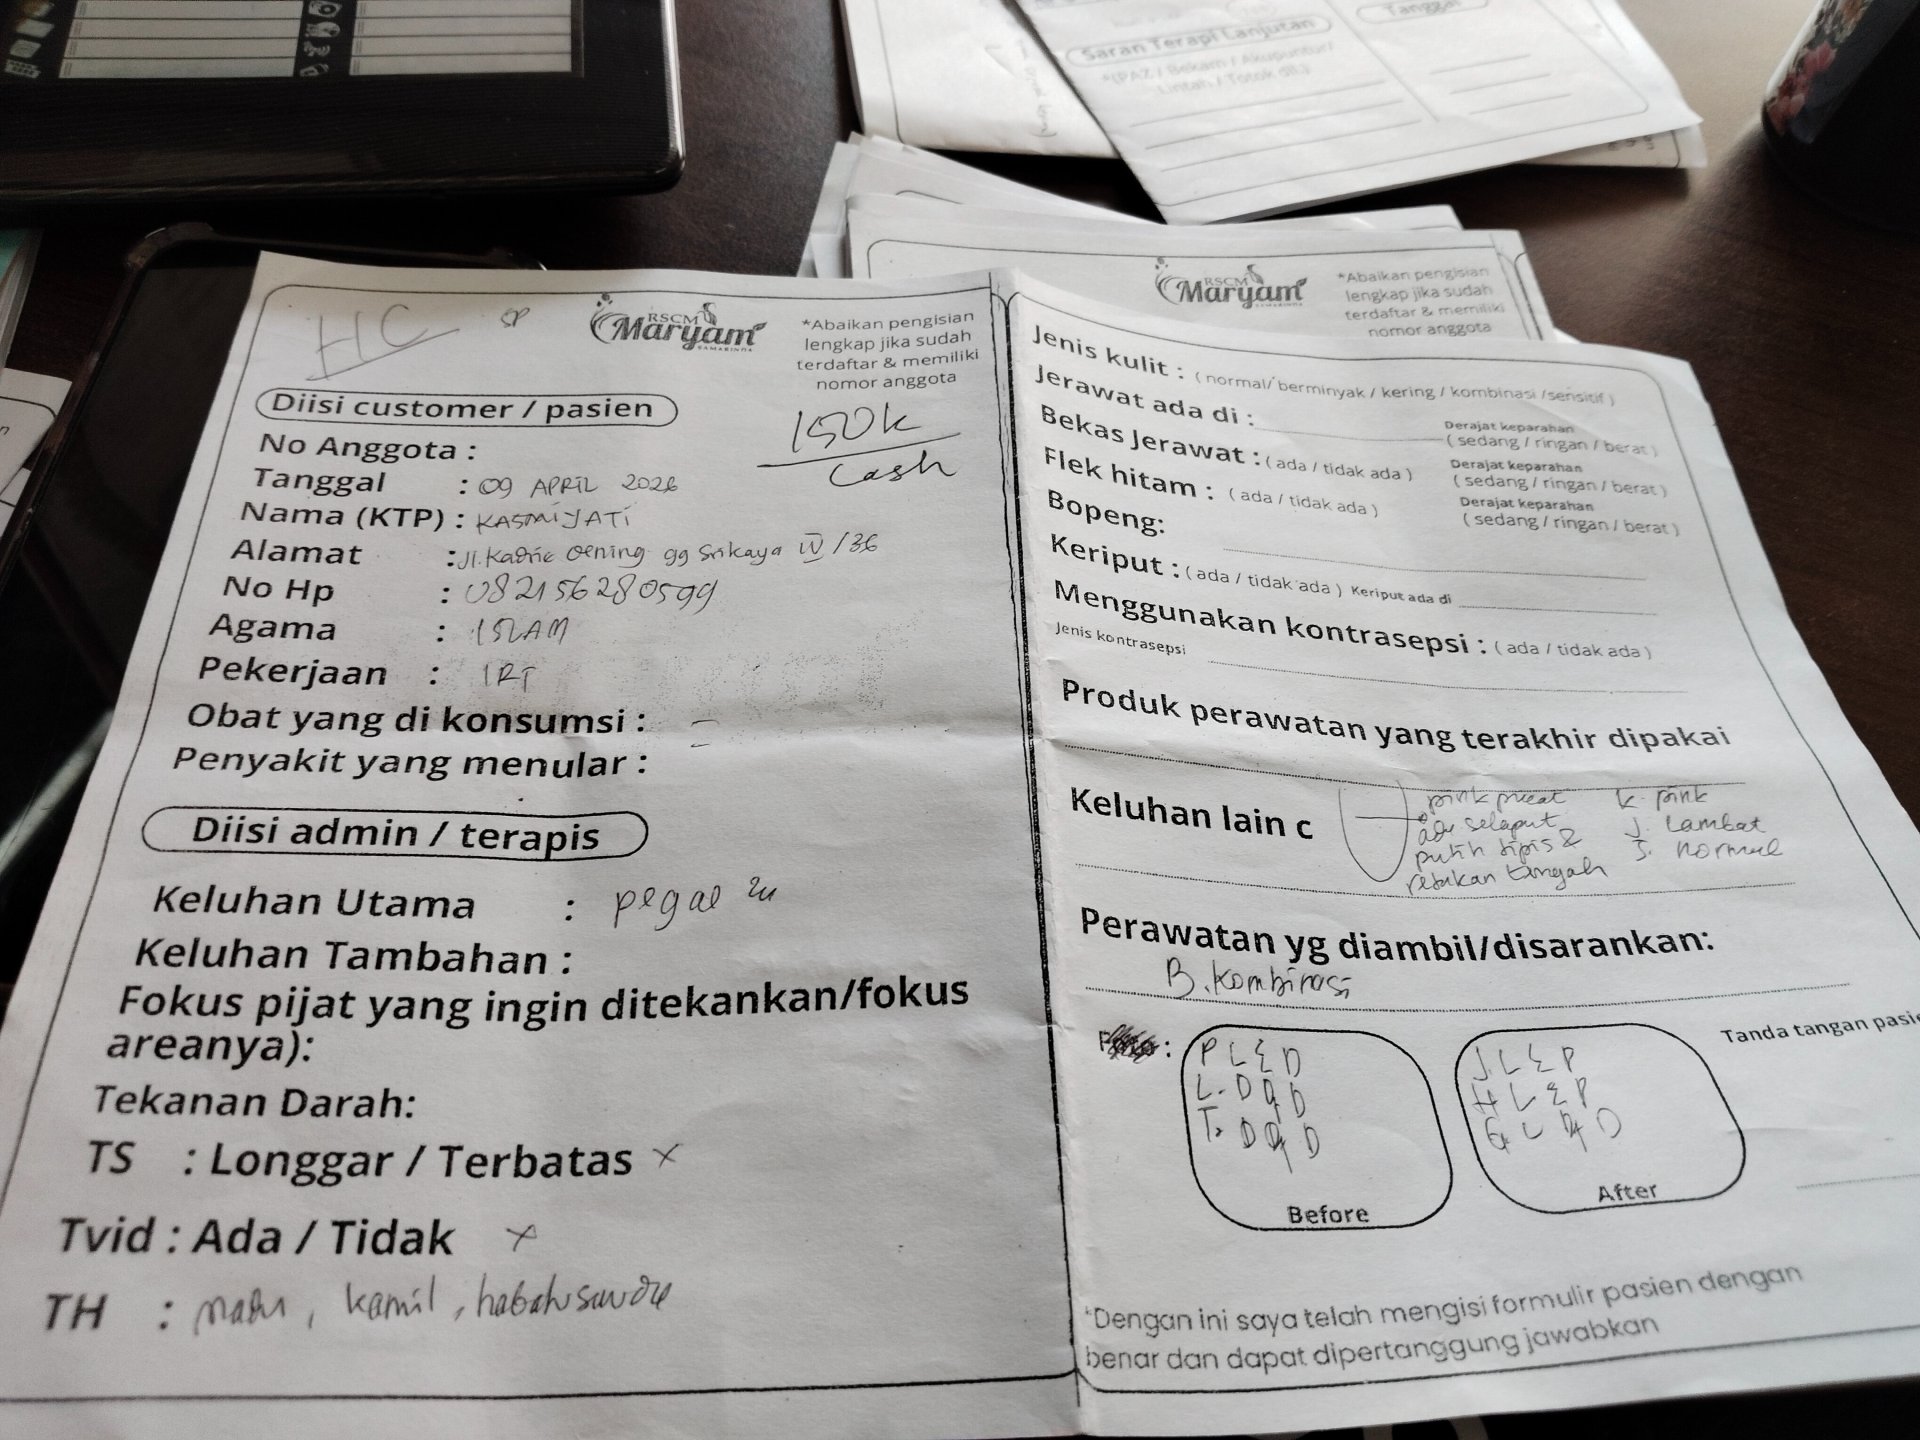 Saran Terapi Lanjutan
*(PAZ / Bekam / Akupuntur/
Lintah / Totok dll.)
Tanggal
RSCM
Maryam
SAMARINDA
*Abaikan pengisian
lengkap jika sudah
terdaftar & memiliki
nomor anggota
HC
SP
RSCM
Maryam
SAMARINDA
*Abaikan pengisian
lengkap jika sudah
terdaftar & memiliki
nomor anggota
150k
Cash
Diisi customer / pasien
No Anggota :
Tanggal : 09 APRIL 2026
Nama (KTP) : KASMIYATI
Alamat : Jl. Kadrie Oening gg Srikaya IV /36
No Hp : 082156280599
Agama : ISLAM
Pekerjaan : IRT
Obat yang di konsumsi : -
Penyakit yang menular : -
Diisi admin / terapis
Keluhan Utama : pegal 2u
Keluhan Tambahan :
Fokus pijat yang ingin ditekankan/fokus
areanya):
Tekanan Darah:
TS : Longgar / Terbatas x
Tvid : Ada / Tidak x
TH : madu, kamil, habatusauda
Jenis kulit : (normal/ berminyak / kering / kombinasi /sensitif )
Jerawat ada di :
Derajat keparahan
( sedang / ringan / berat )
Bekas Jerawat : ( ada / tidak ada )
Derajat keparahan
( sedang / ringan / berat )
Flek hitam : ( ada / tidak ada )
Derajat keparahan
( sedang / ringan / berat )
Bopeng:
Keriput : ( ada / tidak ada ) Keriput ada di
Menggunakan kontrasepsi : ( ada / tidak ada )
Jenis kontrasepsi
Produk perawatan yang terakhir dipakai
Keluhan lain c
pink pucat
ada selaput
putih tipis &
retakan tengah
k. pink
J. lambat
S. normal
Perawatan yg diambil/disarankan:
B. Kombinasi
:
P L Σ D
L. D
T. D
Before
J. L Σ P
H L Σ P
After
Tanda tangan pasie
*Dengan ini saya telah mengisi formulir pasien dengan
benar dan dapat dipertanggung jawabkan